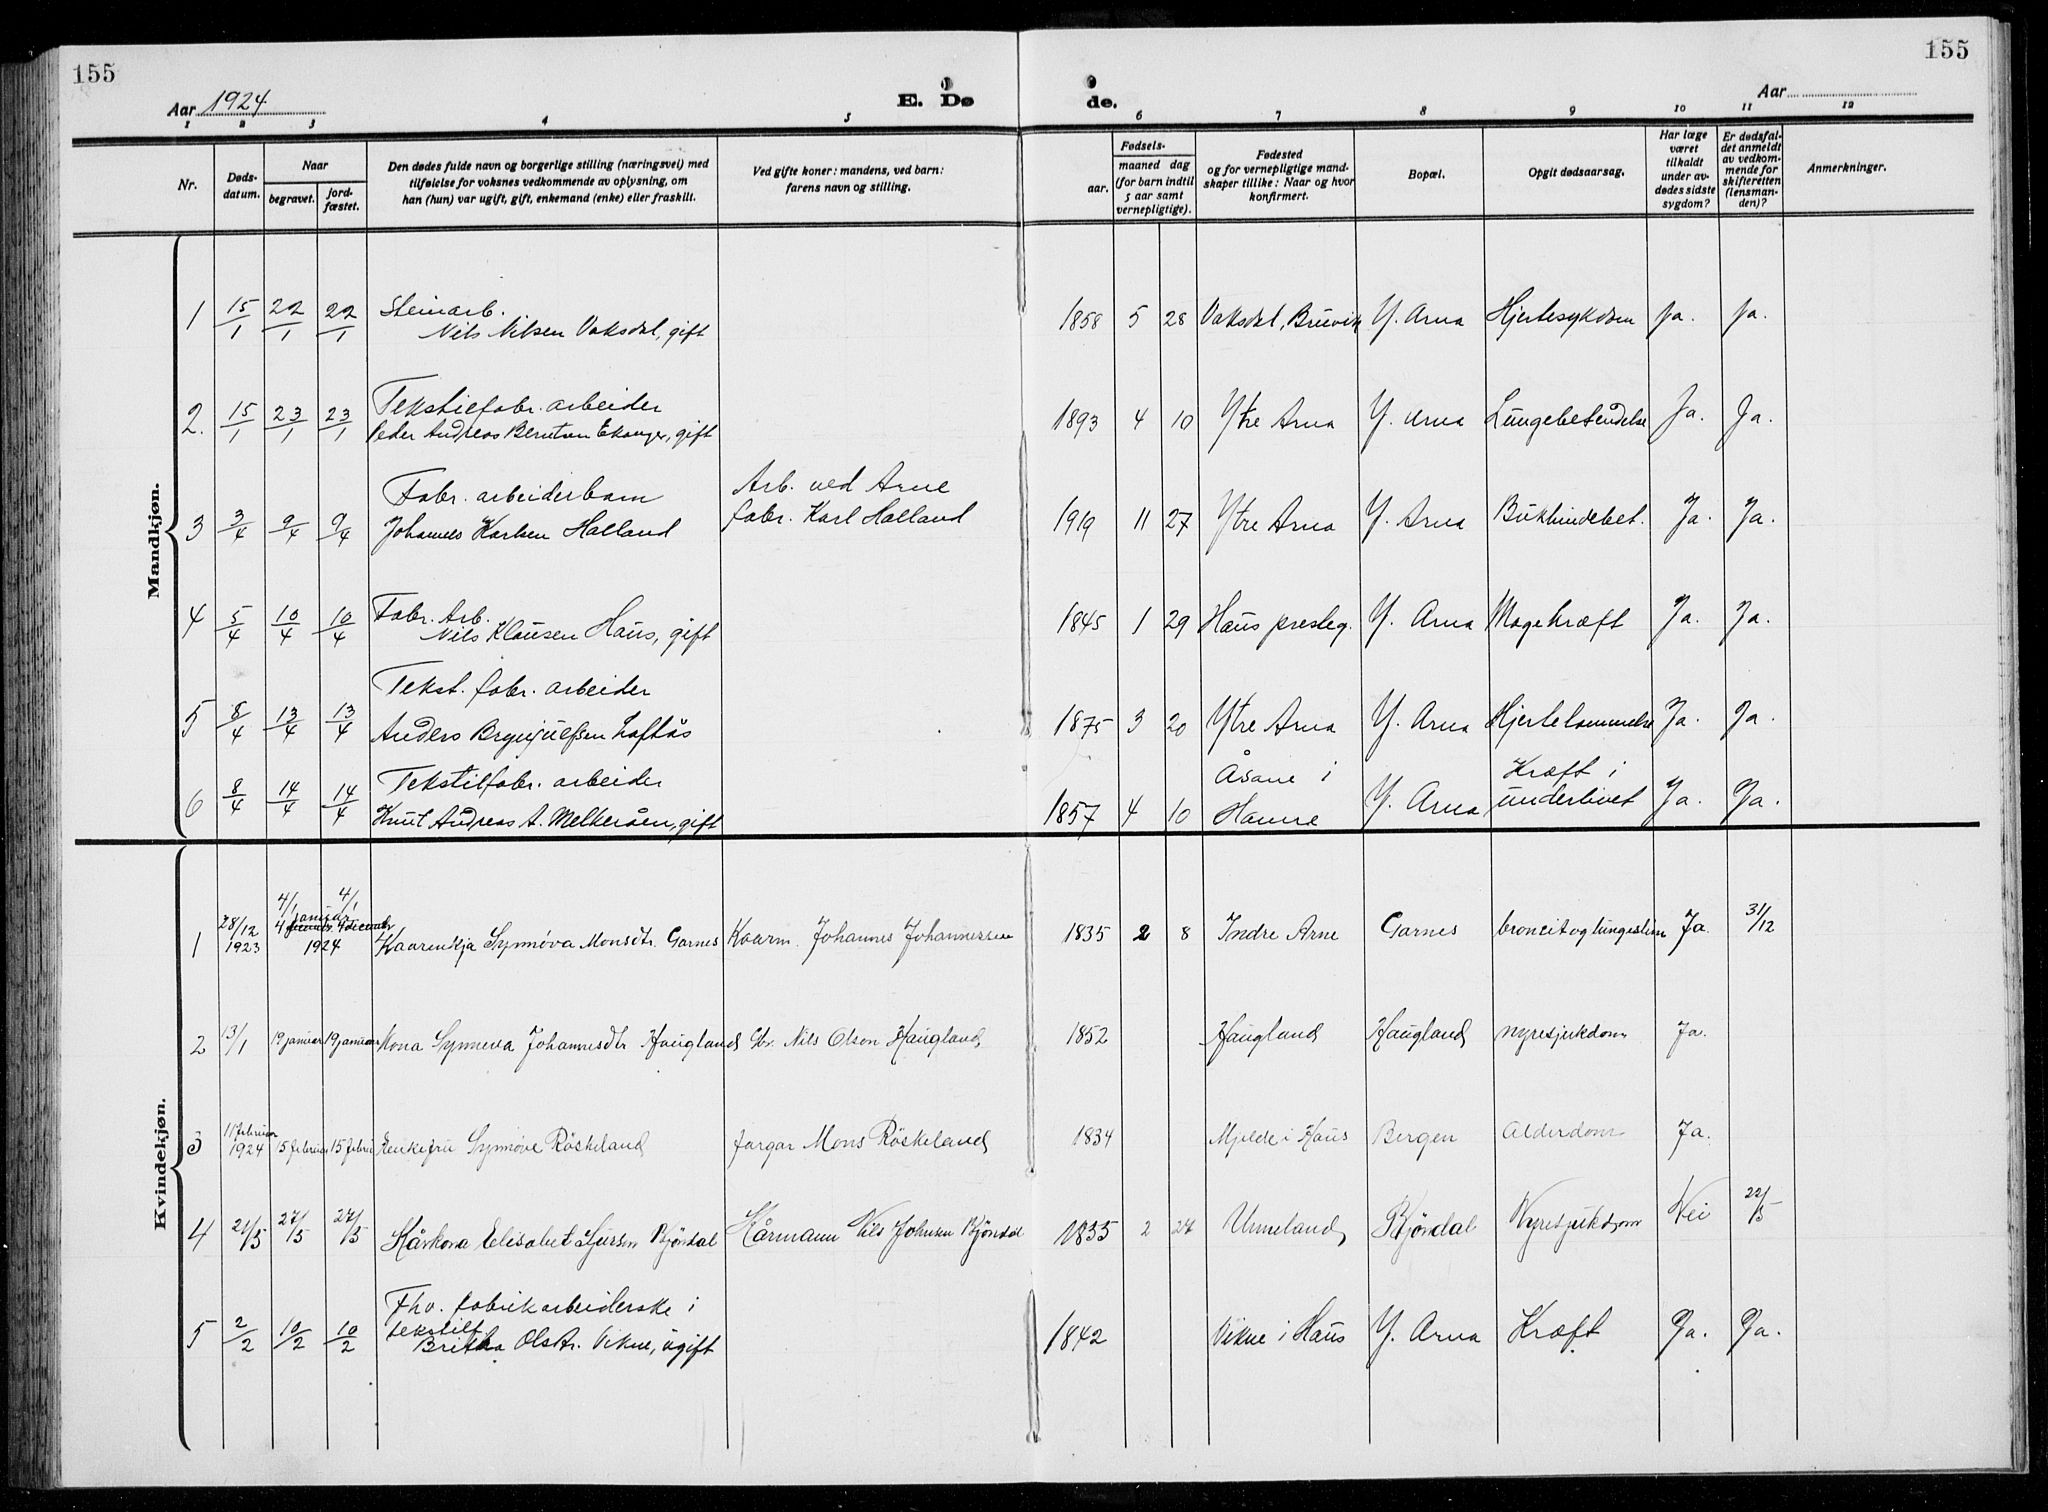 155
155
Aar 1924
E. Døde.
Aar
1 2 3 4 5 6 7 8 9 10 11 12
Nr.
Døds-
datum.
Naar
begravet.
jord-
fæstet.
Den dødes fulde navn og borgerlige stilling (næringsvei) med
tilføielse for voksnes vedkommende av oplysning, om
han (hun) var ugift, gift, enkemand (enke) eller fraskilt.
Ved gifte koner: mandens, ved barn:
farens navn og stilling.
Fødsels-
aar.
maaned dag
(for barn indtil
5 aar samt
vernepligtige).
Fødested
og for vernepligtige mand-
skaper tillike: Naar og hvor
konfirmert.
Bopæl.
Opgit dødsaarsag.
Har læge
været
tilkaldt
under av-
dødes sidste
sygdom?
Er dødsfal-
det anmeldt
av vedkom-
mende for
skifteretten
(lensman-
den)?
Anmerkninger.
Mandkjøn.
1 15/1 22/1 22/1 Steinarb.
Nils Nilsen Vaksdal, gift
1858 5 28 Vaksdal, Bruvik Y. Arna Hjertesykdom Ja. Ja.
2. 15/1 23/1 23/1 Tekstilfabr. arbeider
Peder Andreas Berntsen Ekanger, gift
1893 4 10 Ytre Arna Y. Arna Lungebetendelse Ja. Ja.
3 3/4 9/4 9/4 Fabr. arbeiderbarn
Johannes Karlsen Halland
Arb. ved Arne
fabr. Karl Halland
1919 11 27 Ytre Arna Y. Arna Bukhindebet. Ja. Ja.
4 5/4 10/4 10/4 Fabr. Arb.
Nils Klausen Haus, gift
1845 1 29 Haus presteg. Y. Arna Magekræft Ja. Ja.
5 8/4 13/4 13/4 Tekst. fabr. arbeider
Anders Brynjulfsen Loftås
1875 3 20 Ytre Arna Y. Arna Hjertelammelse Ja. Ja.
6 8/4 14/4 14/4 Tekstilfabr. arbeider
Knut Andreas A. Melkeråen, gift
1857 4 10 Åsane i
Hamre
Y. Arna
Kræft i
underlivet
Ja. Ja.
Kvindekjøn.
1 28/12
1923
4/1 4/1
januar
1924
Synnøva Monsdtr. Garnes Kaarm. Johannes Johannessen
1835 2 8 Indre Arne Garnes Ja. 31/12
2 13/1 19 januar 19 januar Kona Synneva Johannesdtr Haugland Gbr. Nils Olson Haugland
1852 Haugland Haugland nyresjukdom Ja.
3 11 februar
1924
15 februar 15 febru Enkefru Synnöve Röskeland Mons Röskeland
1834 Mjelde i Haus Bergen Alderdom Ja.
4 21/5 27/5 27/5 Kårkona Elisabet Sjursn Bjöndal Kårmann Nils Johnsen Bjöndal
1835 2 24 Unneland Bjöndal Nyresjukdom Nei 22/5
5 2/2 10/2 10/2 Fhv. fabrikarbeiderske i
tekstilf
Britha Olsdtr. Vikne, ugift
1842 Vikne i Haus Y. Arna Kræft Ja. Ja.